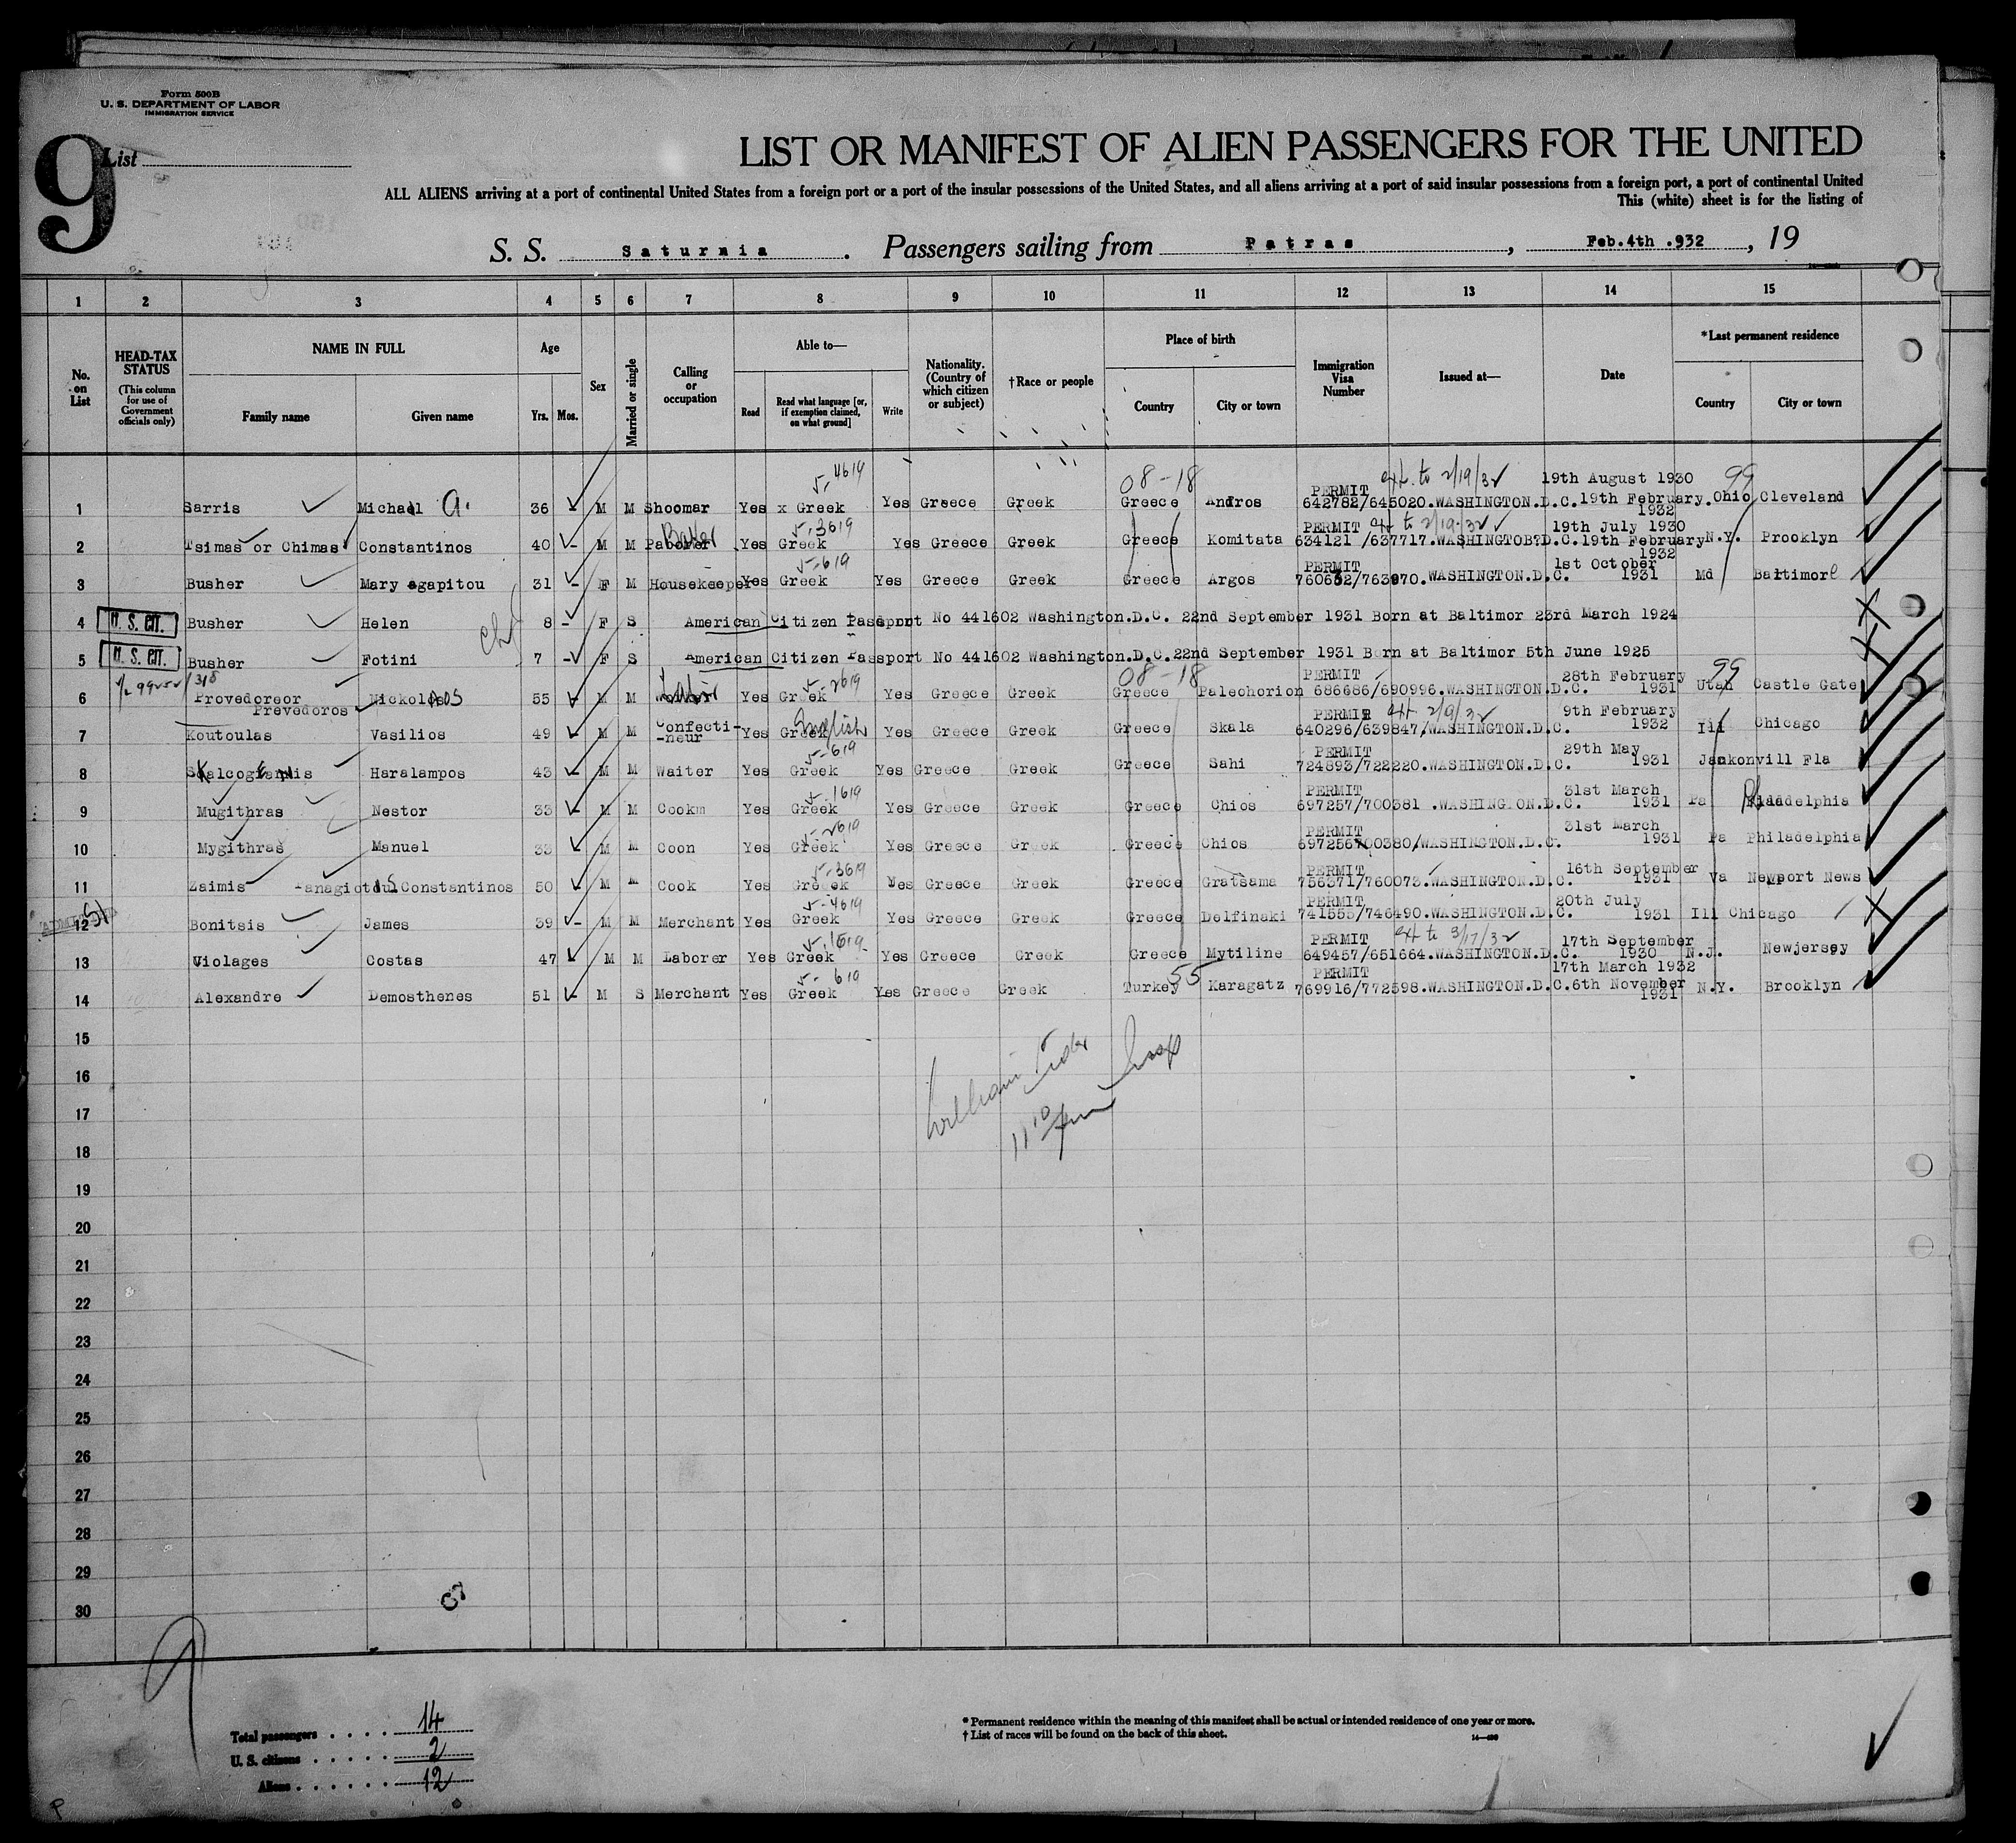 Form 500B
U. S. DEPARTMENT OF LABOR
IMMIGRATION SERVICE
9
List
LIST OR MANIFEST OF ALIEN PASSENGERS FOR THE UNITED
ALL ALIENS arriving at a port of continental United States from a foreign port or a port of the insular possessions of the United States, and all aliens arriving at a port of said insular possessions from a foreign port, a port of continental United
This (white) sheet is for the listing of
S. S. Saturnia . Passengers sailing from Patras , Feb.4th .932 , 19
1 2 3 4 5 6 7 8 9 10 11 12 13 14 15
No. on List
HEAD-TAX STATUS (This column for use of Government officials only)
NAME IN FULL Family name Given name
Age Yrs. Mos.
Sex
Married or single
Calling or occupation
Able to— Read Read what language [or, if exemption claimed, on what ground] Write
Nationality. (Country of which citizen or subject)
†Race or people
Place of birth Country City or town
Immigration Visa Number
Issued at—
Date
*Last permanent residence Country City or town
4619 08-18 PERMIT ext. to 2/19/32 19th August 1930 99
1 Sarris Michael A. 36 M M Shoomar Yes x Greek Yes Greece Greek Greece Andros 642782/645020.WASHINGTON.D.C. 19th February. Ohio Cleveland
1932
Baker 3619 PERMIT ext to 2/19-32 19th July 1930
2 Tsimas or Chimas Constantinos 40 - M M Yes Greek Yes Greece Greek Greece Komitata 634121 /637717.WASHINGTOB?D.C.19th February N.Y. Prooklyn
1932
619 PERMIT 1st October
3 Busher Mary agapitou 31 - F M Housekeeper Yes Greek Yes Greece Greek Greece Argos 760632/763970.WASHINGTON.D.C. 1931 Md Baltimore
4 U. S. CIT. Busher Helen 8 - F S American Citizen Passport No 441602 Washington.D.C. 22nd September 1931 Born at Baltimor 23rd March 1924
5 U. S. CIT. Busher Fotini 7 - F S American Citizen Passport No 441602 Washington.D.C.22nd September 1931 Born at Baltimor 5th June 1925
2619 08-18 PERMIT 28th February 99
6 Provedoreor Nickolaos 55 - M M Yes Greek Yes Greece Greek Greece Paleochorion 686686/690996.WASHINGTON.D.C. 1931 Utah Castle Gate
Prevedoros
English PERMIT ext 2/9/32 9th February
7 Koutoulas Vasilios 49 - M M Confecti-neur Yes Greek Yes Greece Greek Greece Skala 640296/639847/WASHINGTON.D.C. 1932 Ill Chicago
619 PERMIT 29th May
8 Haralampos 43 - M M Waiter Yes Greek Yes Greece Greek Greece Sahi 724893/722220.WASHINGTON.D.C. 1931 Jankonvill Fla
1619 PERMIT 31st March
9 Mugithras Nestor 33 - M M Cookm Yes Greek Yes Greece Greek Greece Chios 697257/700381 .WASHINGTON.D.C. 1931 Pa Philadelphis
2619 PERMIT 31st March
10 Mygithras Manuel 33 M M Coon Yes Greek Yes Greece Greek Greece Chios 697256700380/WASHINGTON.D.C. 1931 Pa Philadelphia
3619 PERMIT 16th September
11 Zaimis Constantinos 50 - M M Cook Yes Greek Yes Greece Greek Greece Gratsama 756371/760073.WASHINGTON.D.C. 1931 Va Newport News
4619 PERMIT 20th July
12 Bonitsis James 39 - M M Merchant Yes Greek Yes Greece Greek Greece Delfinaki 741555/746490.WASHINGTON.D.C. 1931 Ill Chicago
1619 PERMIT ext to 3/17/32 17th September
13 Violages Costas 47 M M Laborer Yes Greek Yes Greece Greek Greece Mytiline 649457/651664.WASHINGTON.D.C. 1930 N.J. Newjersey
619 55 PERMIT 17th March 1932
14 Alexandre Demosthenes 51 - M S Merchant Yes Greek Yes Greece Greek Turkey Karagatz 769916/772598.WASHINGTON.D.C.6th November N.Y. Brooklyn
1931
15
16
17
18
19
20
21
22
23
24
25
26
27
28
29
30
9
Total passengers 14
U. S. citizens 2
Aliens 12
* Permanent residence within the meaning of this manifest shall be actual or intended residence of one year or more.
† List of races will be found on the back of this sheet.